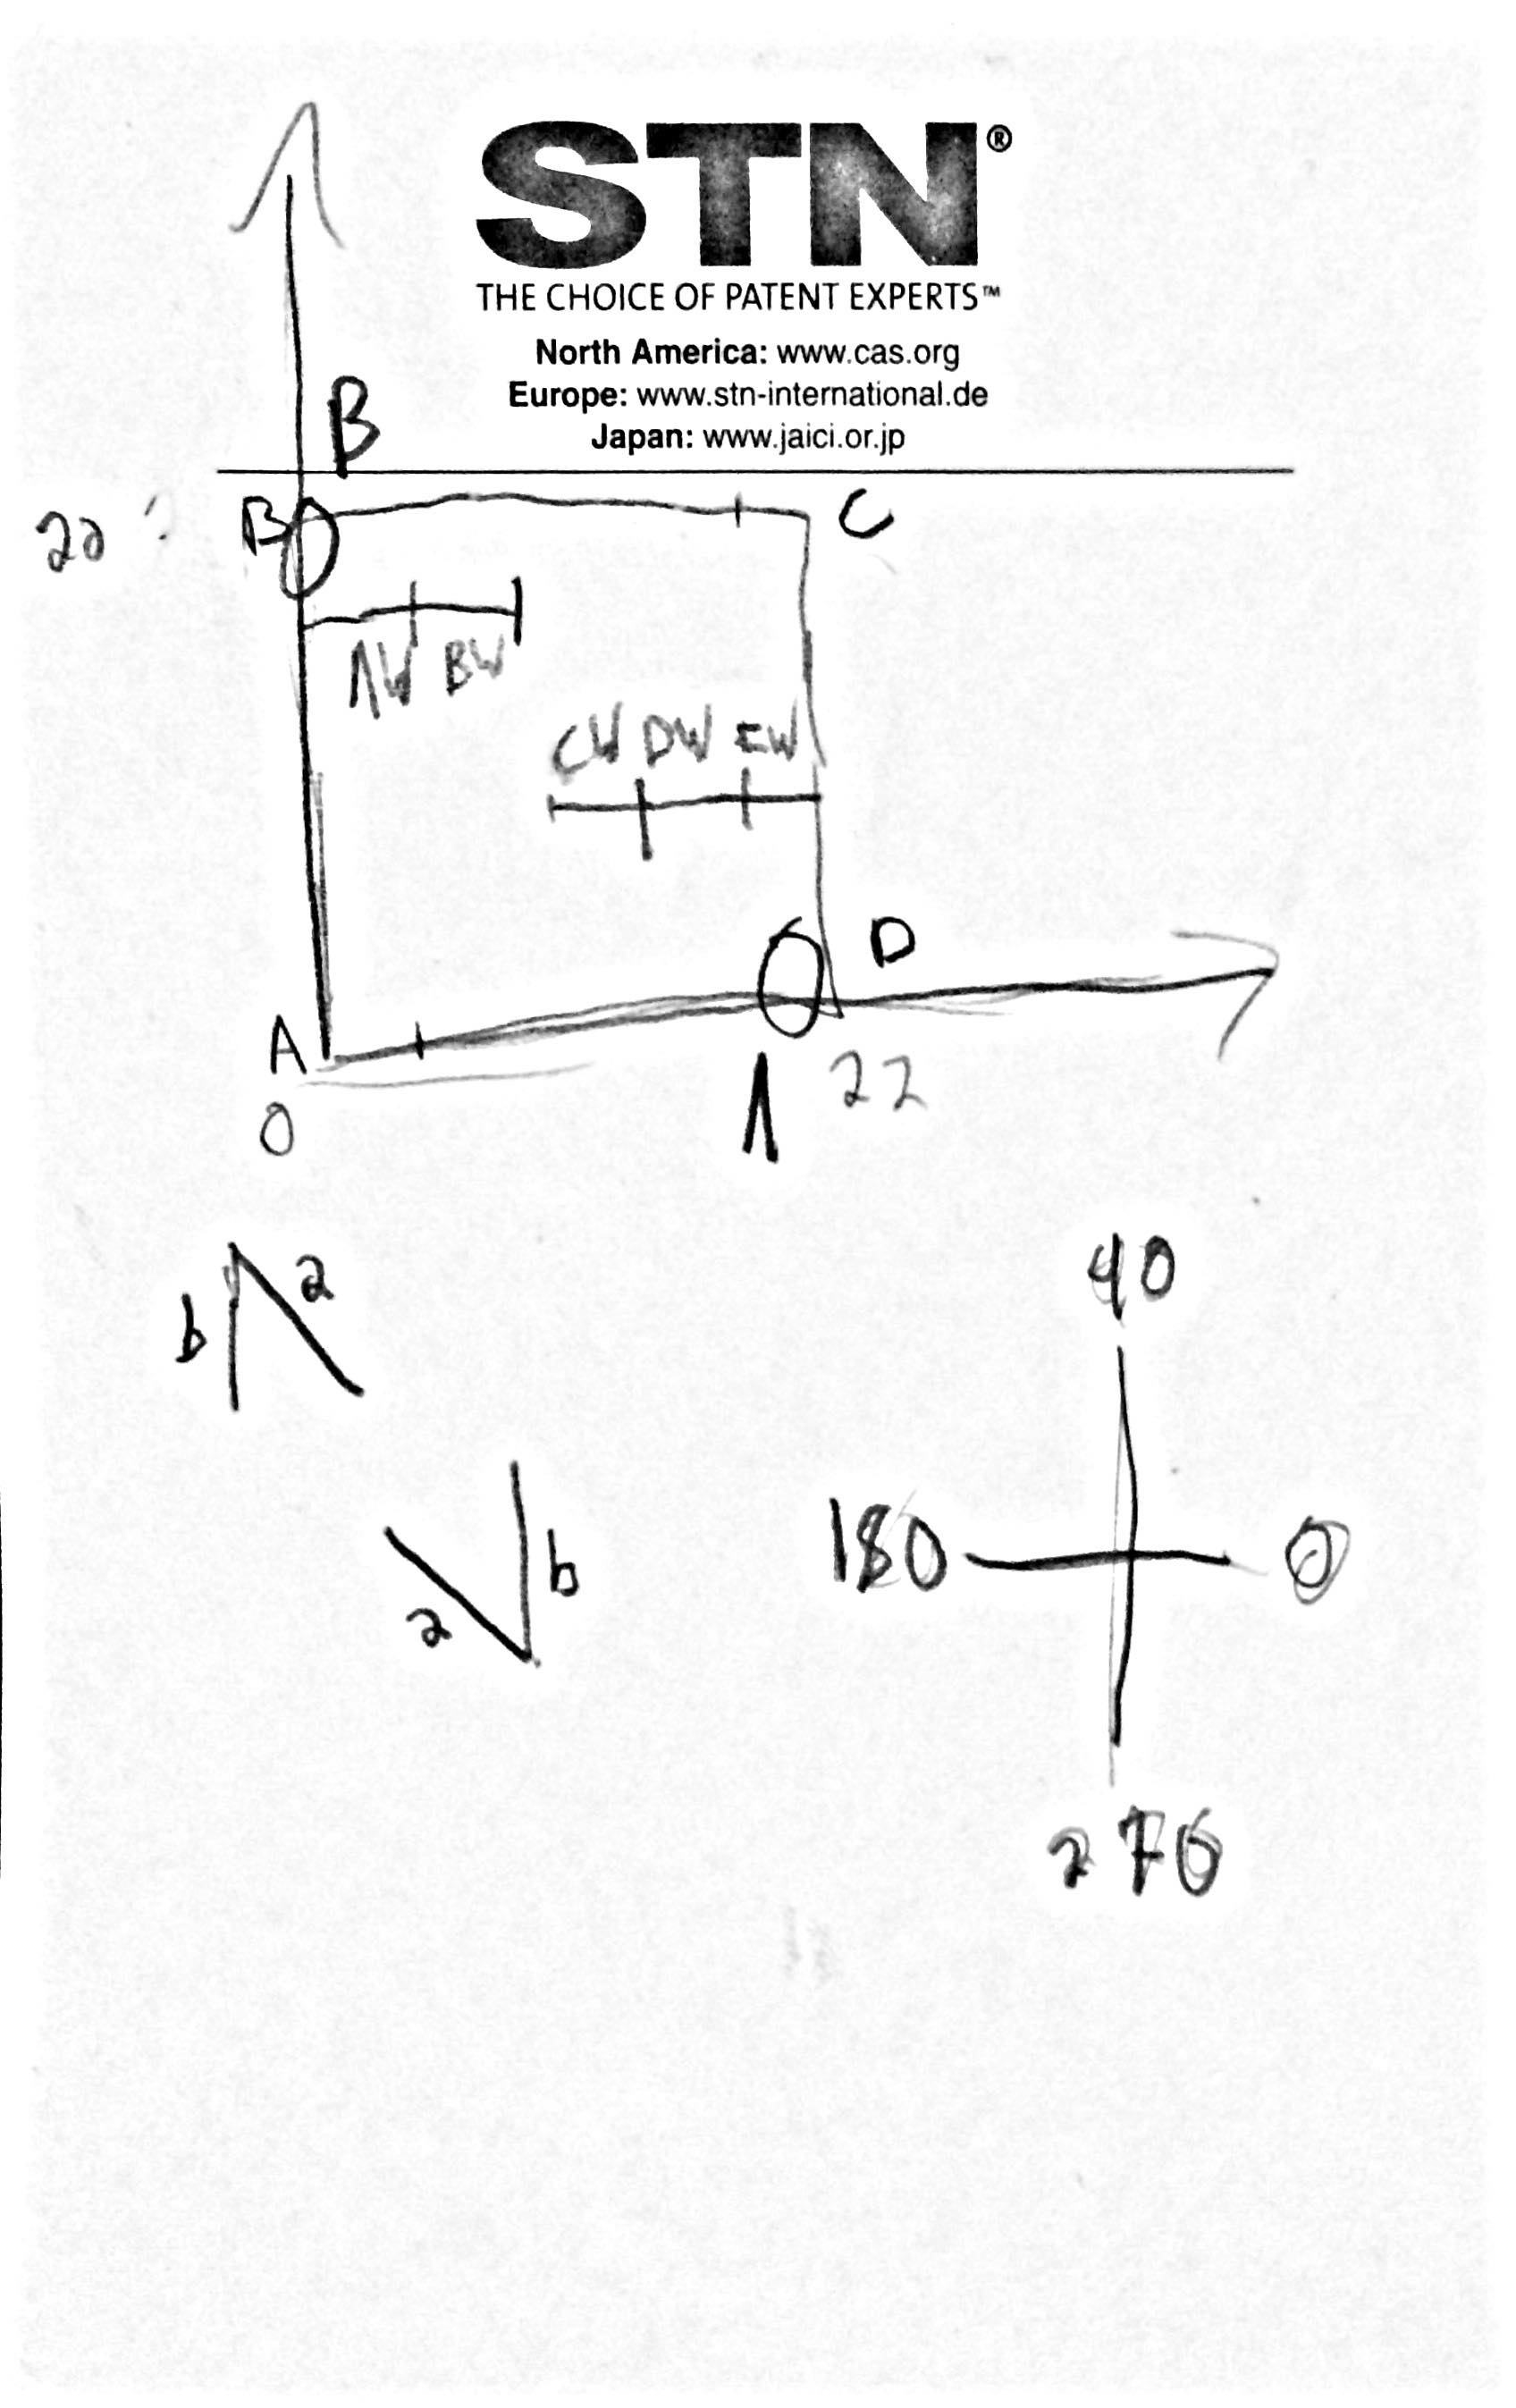 STN®
THE CHOICE OF PATENT EXPERTS™
North America: www.cas.org
Europe: www.stn-international.de
Japan: www.jaici.or.jp
B
20 ? B C
BW
CW DW EW
D
A
22
0
40
b a
180 0
a b
270